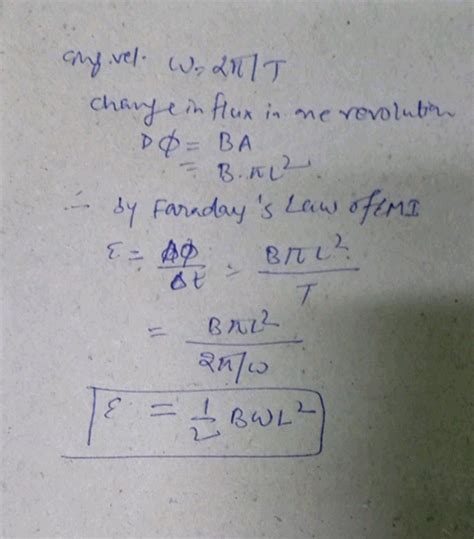 ang. vel. ω = 2π/T
change in flux in one revolution
Dϕ = BA
= B.πL²
∴ by Faraday's Law of EMI
ε = Δϕ/Δt = BπL²/T
= BπL²/2π/ω
ε = 1/2 BωL²